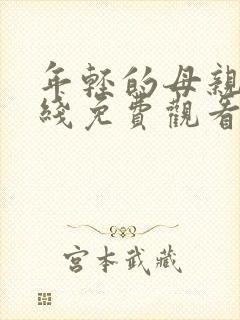 年轻的母親
綫免費觀看
宮本武藏